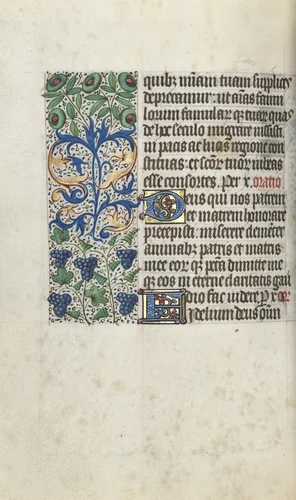 quibz mĩam tuam supplices
deprecamur: ut aĩas famu
lorum famular qz tuar quas
de hoc seculo migrare iussisti.
in pacis ac lucis regione con
stituas: et scõr tuor iubeas
esse consortes. Per x. oratio.
Deus qui nos patrem
et matrem honorare
precepisti: miserere clemẽter
animabz patris et matris
mee eor qz pctã dimitte me
qz eos in eterne claritatis gau
dio fac videre. P x or
Fidelium deus oñm